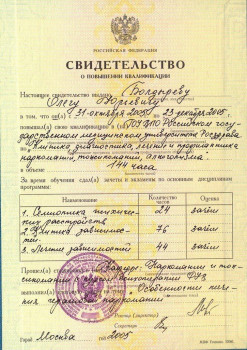 РОССИЙСКАЯ ФЕДЕРАЦИЯ
СВИДЕТЕЛЬСТВО
О ПОВЫШЕНИИ КВАЛИФИКАЦИИ
Настоящее свидетельство выдано Болдыреву
Олегу Юрьевичу
в том, что он(а) с 31 октября 2005 по 23 декабря 2005 г.
повышал(а) свою квалификацию в (на) ГОУ ВПО Российском госу-
дарственном медицинском университете Росздрава
по Клиника, диагностика, лечение и профилактика
наркомании, токсикомании, алкоголизма.
в объеме 144 часа
За время обучения сдал(а) зачеты и экзамены по основным дисциплинам
программы:
Наименование
Количество часов
Оценка
1. Семиотика психических расстройств
24
зачёт
2. Клиника зависимостей
36
зачёт
3. Лечение зависимостей
44
зачёт
Прошел(а)
Наркомании и ток-
сикомании
ФУВ
Особенности
наркомании
Ректор (директор)
Секретарь
Город Москва
2005